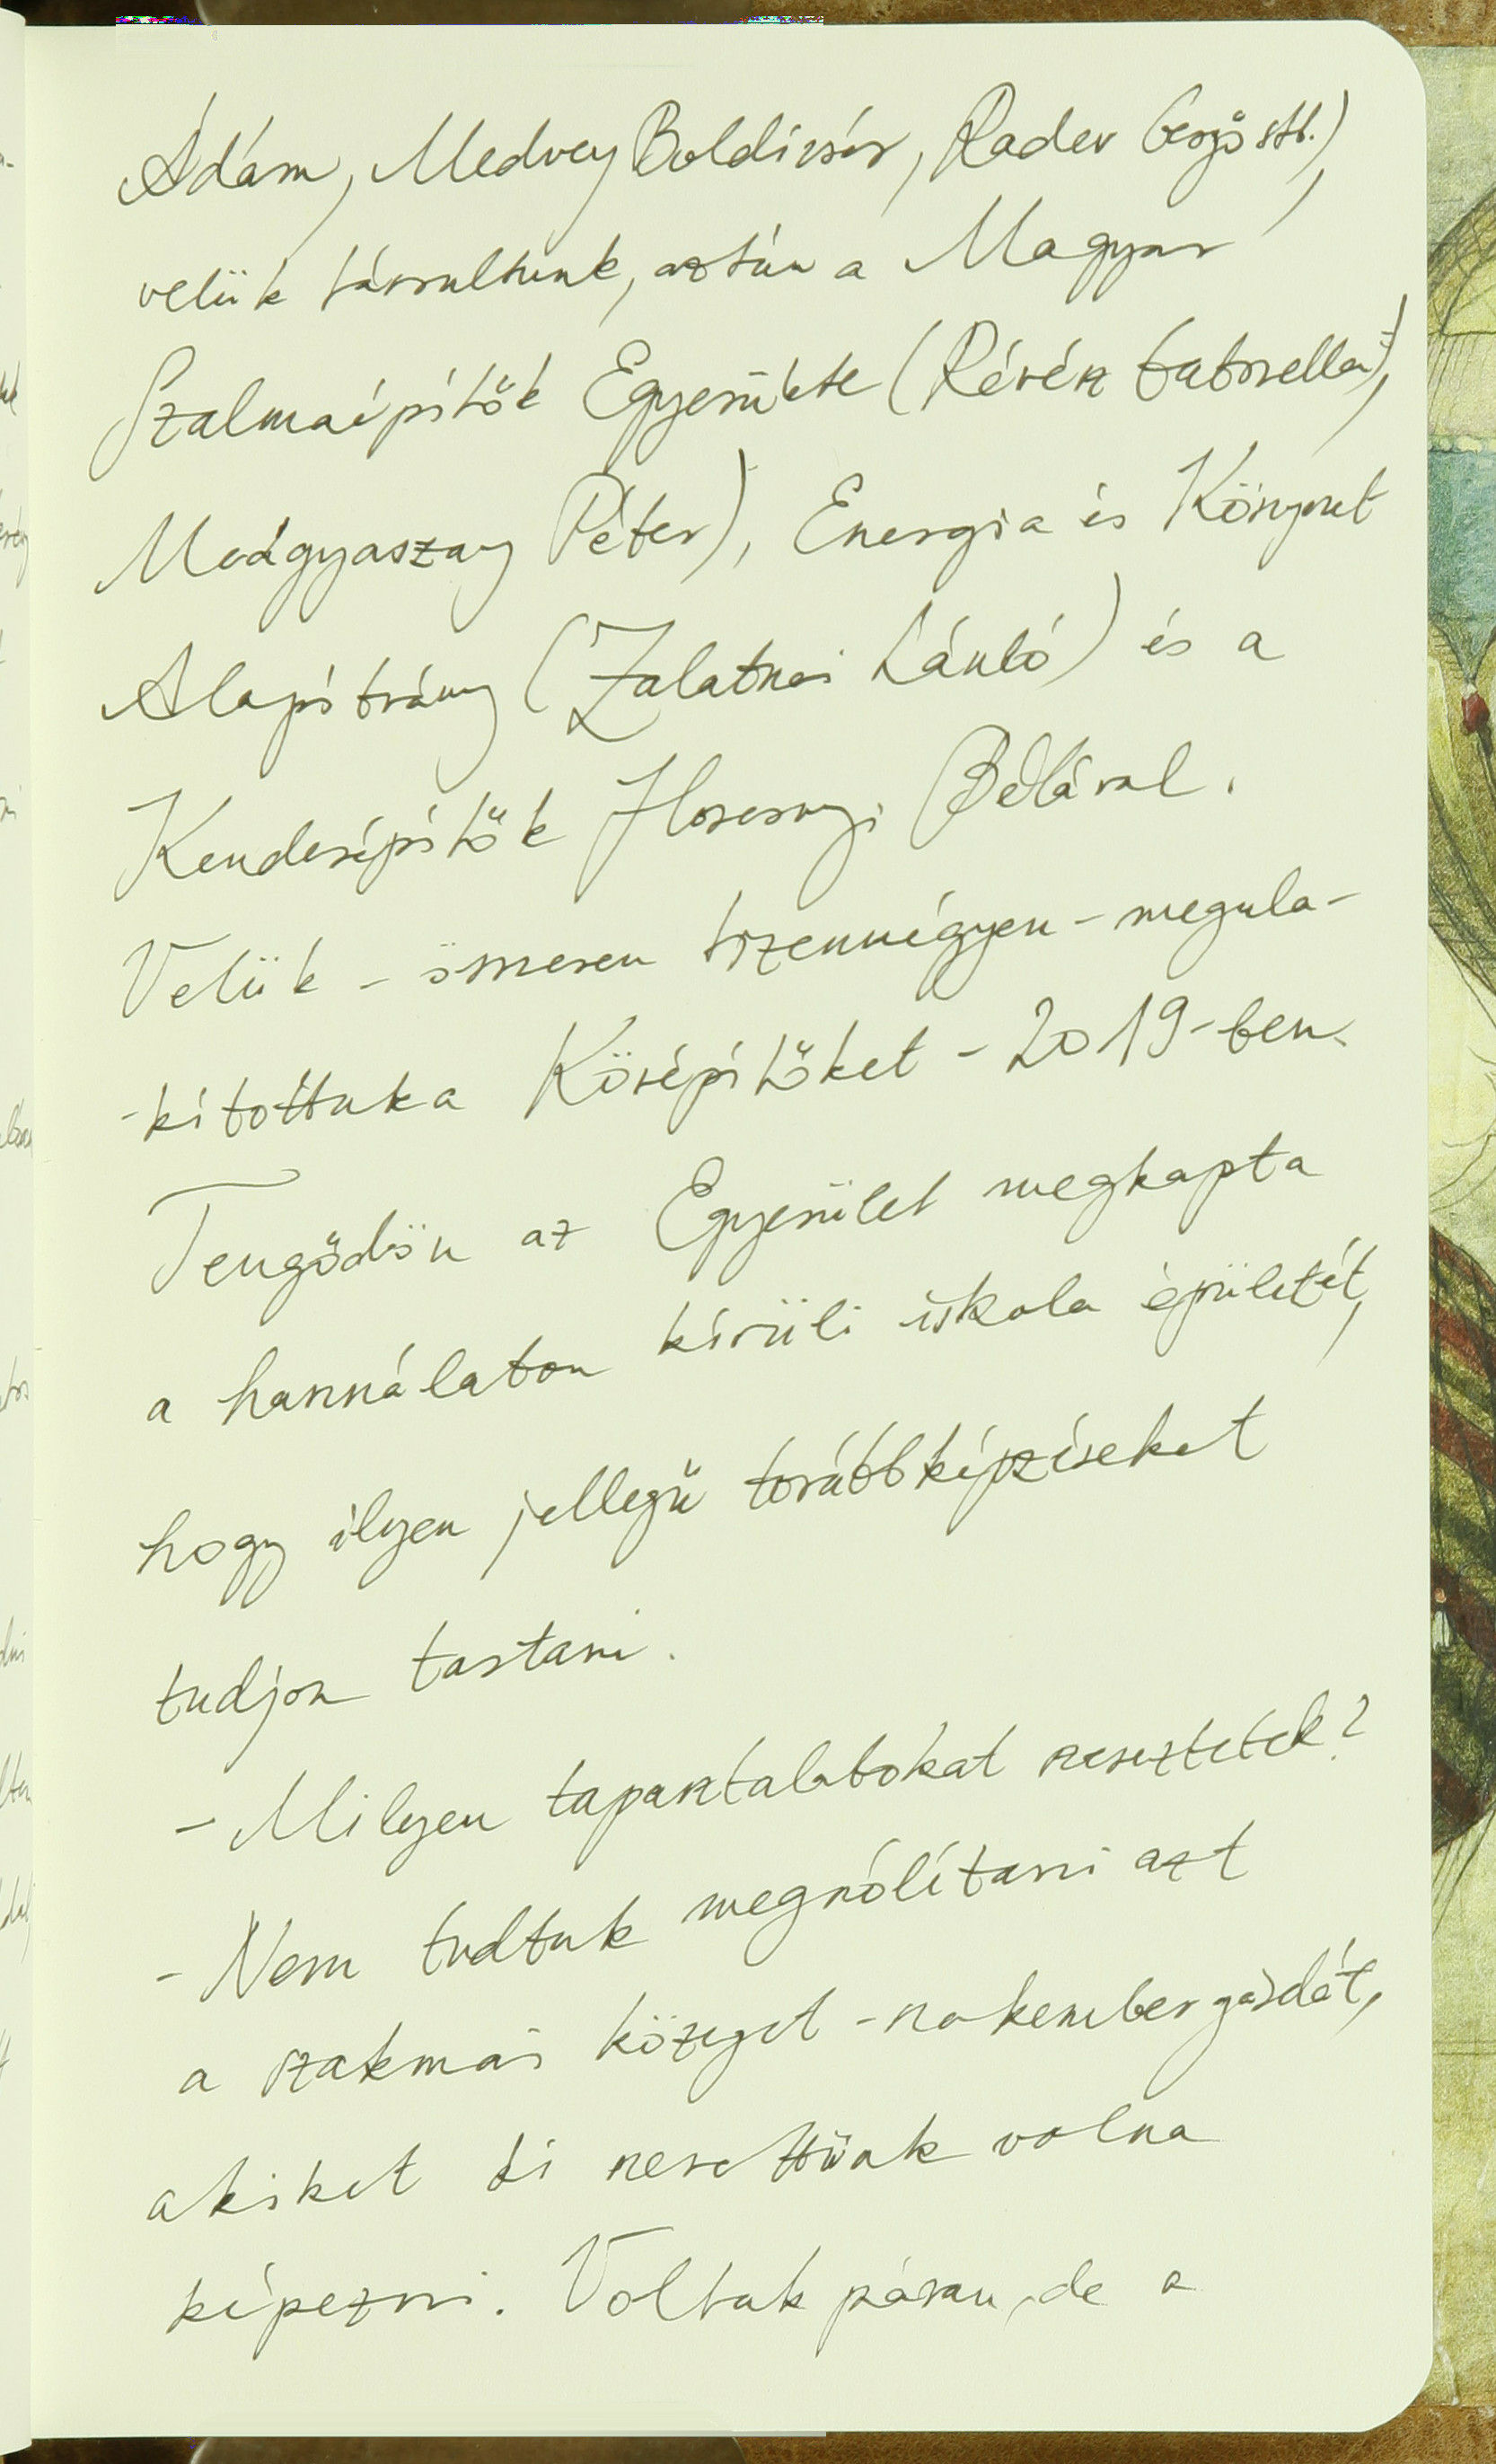 Ádám, Medvey Boldizsár, Radev Gergő stb.),
velük társultunk, aztán a Magyar
Szalmaépítők Egyesülete (Révész Gabriella,
Medgyaszay Péter), Energia és Környezet
Alapítvány (Zalatnai László) és a
Kenderépítők Bélával.
Velük - összesen tizennégyen - megala-
-kítottuk a Középítőket - 2019-ben.
Tengődön az Egyesület megkapta
a használaton kívüli iskola épületét,
hogy ilyen jellegű továbbképzéseket
tudjon tartani.
- Milyen tapasztalatokat szereztetek?
- Nem tudtuk megszólítani azt
a szakmai közeget - szakembergárdát,
akiket ki szerettünk volna
képezni. Voltak páran, de a